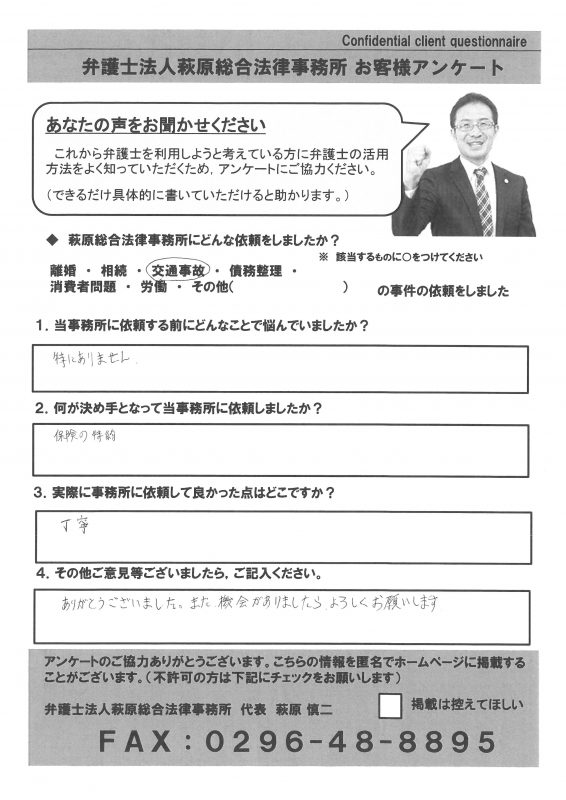 Confidential client questionnaire
弁護士法人萩原総合法律事務所 お客様アンケート
あなたの声をお聞かせください
これから弁護士を利用しようと考えている方に弁護士の活用
方法をよく知っていただくため，アンケートにご協力ください。
（できるだけ具体的に書いていただけると助かります。）
◆ 萩原総合法律事務所にどんな依頼をしましたか？
※ 該当するものに○をつけてください
離婚 ・ 相続 ・ 交通事故 ・ 債務整理 ・
消費者問題 ・ 労働 ・ その他( ) の事件の依頼をしました
１．当事務所に依頼する前にどんなことで悩んでいましたか？
特にありません．
２．何が決め手となって当事務所に依頼しましたか？
保険の特約
３．実際に事務所に依頼して良かった点はどこですか？
丁寧
４．その他ご意見等ございましたら，ご記入ください。
ありがとうございました。また、機会がありましたら、よろしくお願いします
アンケートのご協力ありがとうございます。こちらの情報を匿名でホームページに掲載する
ことがございます。（不許可の方は下記にチェックをお願いします）
弁護士法人萩原総合法律事務所 代表 萩原 慎二 掲載は控えてほしい
ＦＡＸ：０２９６−４８−８８９５